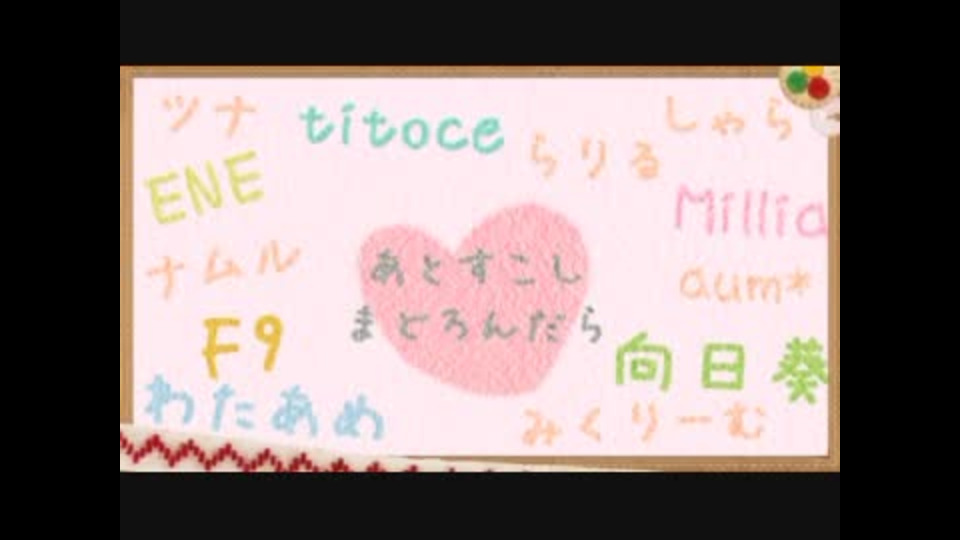 ツナ
titoce
しゃら
らりる
ENE
Millia
ナムル
あとすこし
aum*
まどろんだら
F9
向日葵
わたあめ
みくりーむ